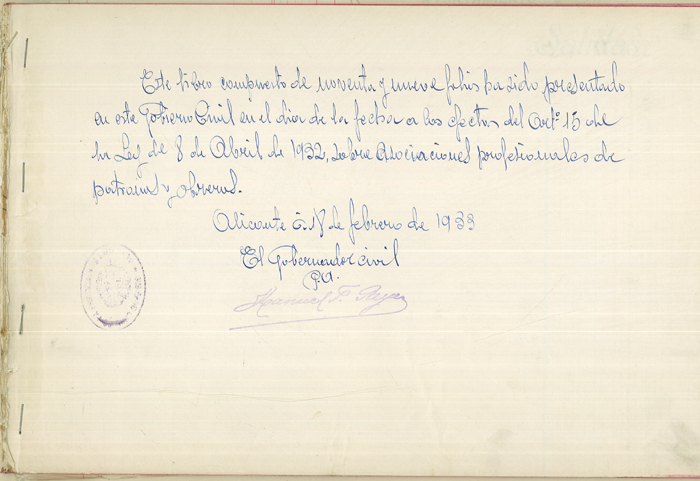 Este libro compuesto de noventa y nueve folios ha sido presentado
en este Gobierno Civil en el dia de la fecha a los efectos del Artº 15 de
la Ley de 8 de Abril de 1932, sobre Asociaciones profesionales de
patronos y obreros.
Alicante de febrero de 1933
El Gobernador civil
P.A.
Manuel F.